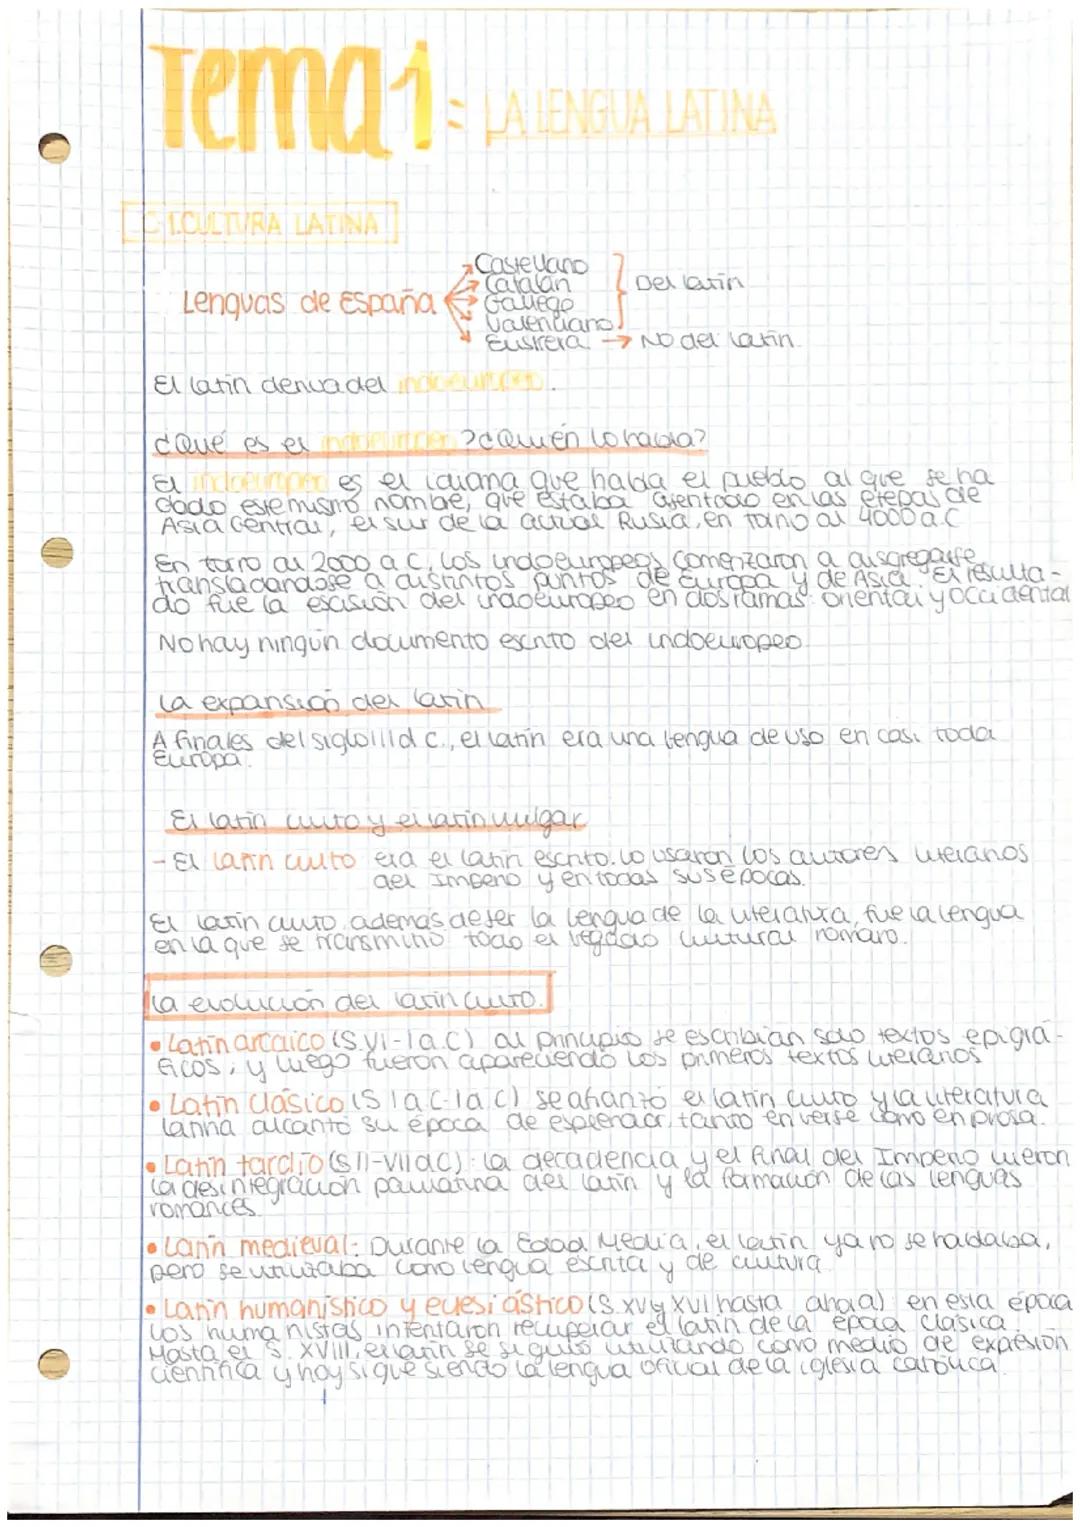 Tema 1: LA LENGUA LATINA
C 1.CULTURA LATINA
Lenguas de España
Castellano
Catalán
Gallego
Valenciano
Del latín
Euskera → No del latín.
El latín deriva del indoeuropeo.
¿Qué es el indoeuropeo? ¿Quién lo habla?
El indoeuropeo es el idioma que habla el pueblo al que se ha
dado este mismo nombre, que estaba asentado en las etepas de
Asia Central, el sur de la actual Rusia, en torno al 4000 a.C
En torno al 2000 a.C, los indoeuropeos comenzaron a disgregarse
transladandose a distintos puntos de Europa y de Asia. El resulta-
do fue la escisión del indoeuropeo en dos ramas: oriental y occidental
No hay ningún documento escrito del indoeuropeo.
La expansión del latín
A finales del siglo III d C., el latín era una lengua de uso en casi toda
Europa.
El latín culto y el latín vulgar
- El latín culto era el latín escrito. Lo usaron los autores literarios
del Imperio y en todas sus épocas.
El latín culto, además de ser la lengua de la literatura, fue la lengua
en la que se transmitió todo el legado cultural romano.
La evolución del latín culto.
• Latín arcaico (S.VI-I a.C) al principio se escribían solo textos epigrá-
ficos, y luego fueron apareciendo los primeros textos literarios
• Latín Clásico (S I a C-I a C) se afianzó el latín culto y la literatura
latina alcanzó su época de esplendor, tanto en verse como en prosa.
• Latín tardío (S II-VII dC): la decadencia y el final del Imperio
la desintegración paulatina del latín y la formación de las lenguas
romances.
• Latín medieval: Durante la Edad Media, el latín ya no se hablaba,
pero se utilizaba como lengua escrita y de cultura.
• Latín humanístico y eclesiástico (S. XV y XVI hasta ahora) en esta época
los humanistas intentaron recuperar el latín de la época clásica.
Hasta el S. XVIII, el latín se siguió utilizando como medio de expresión
científica y hoy sigue siendo la lengua oficial de la iglesia católica.